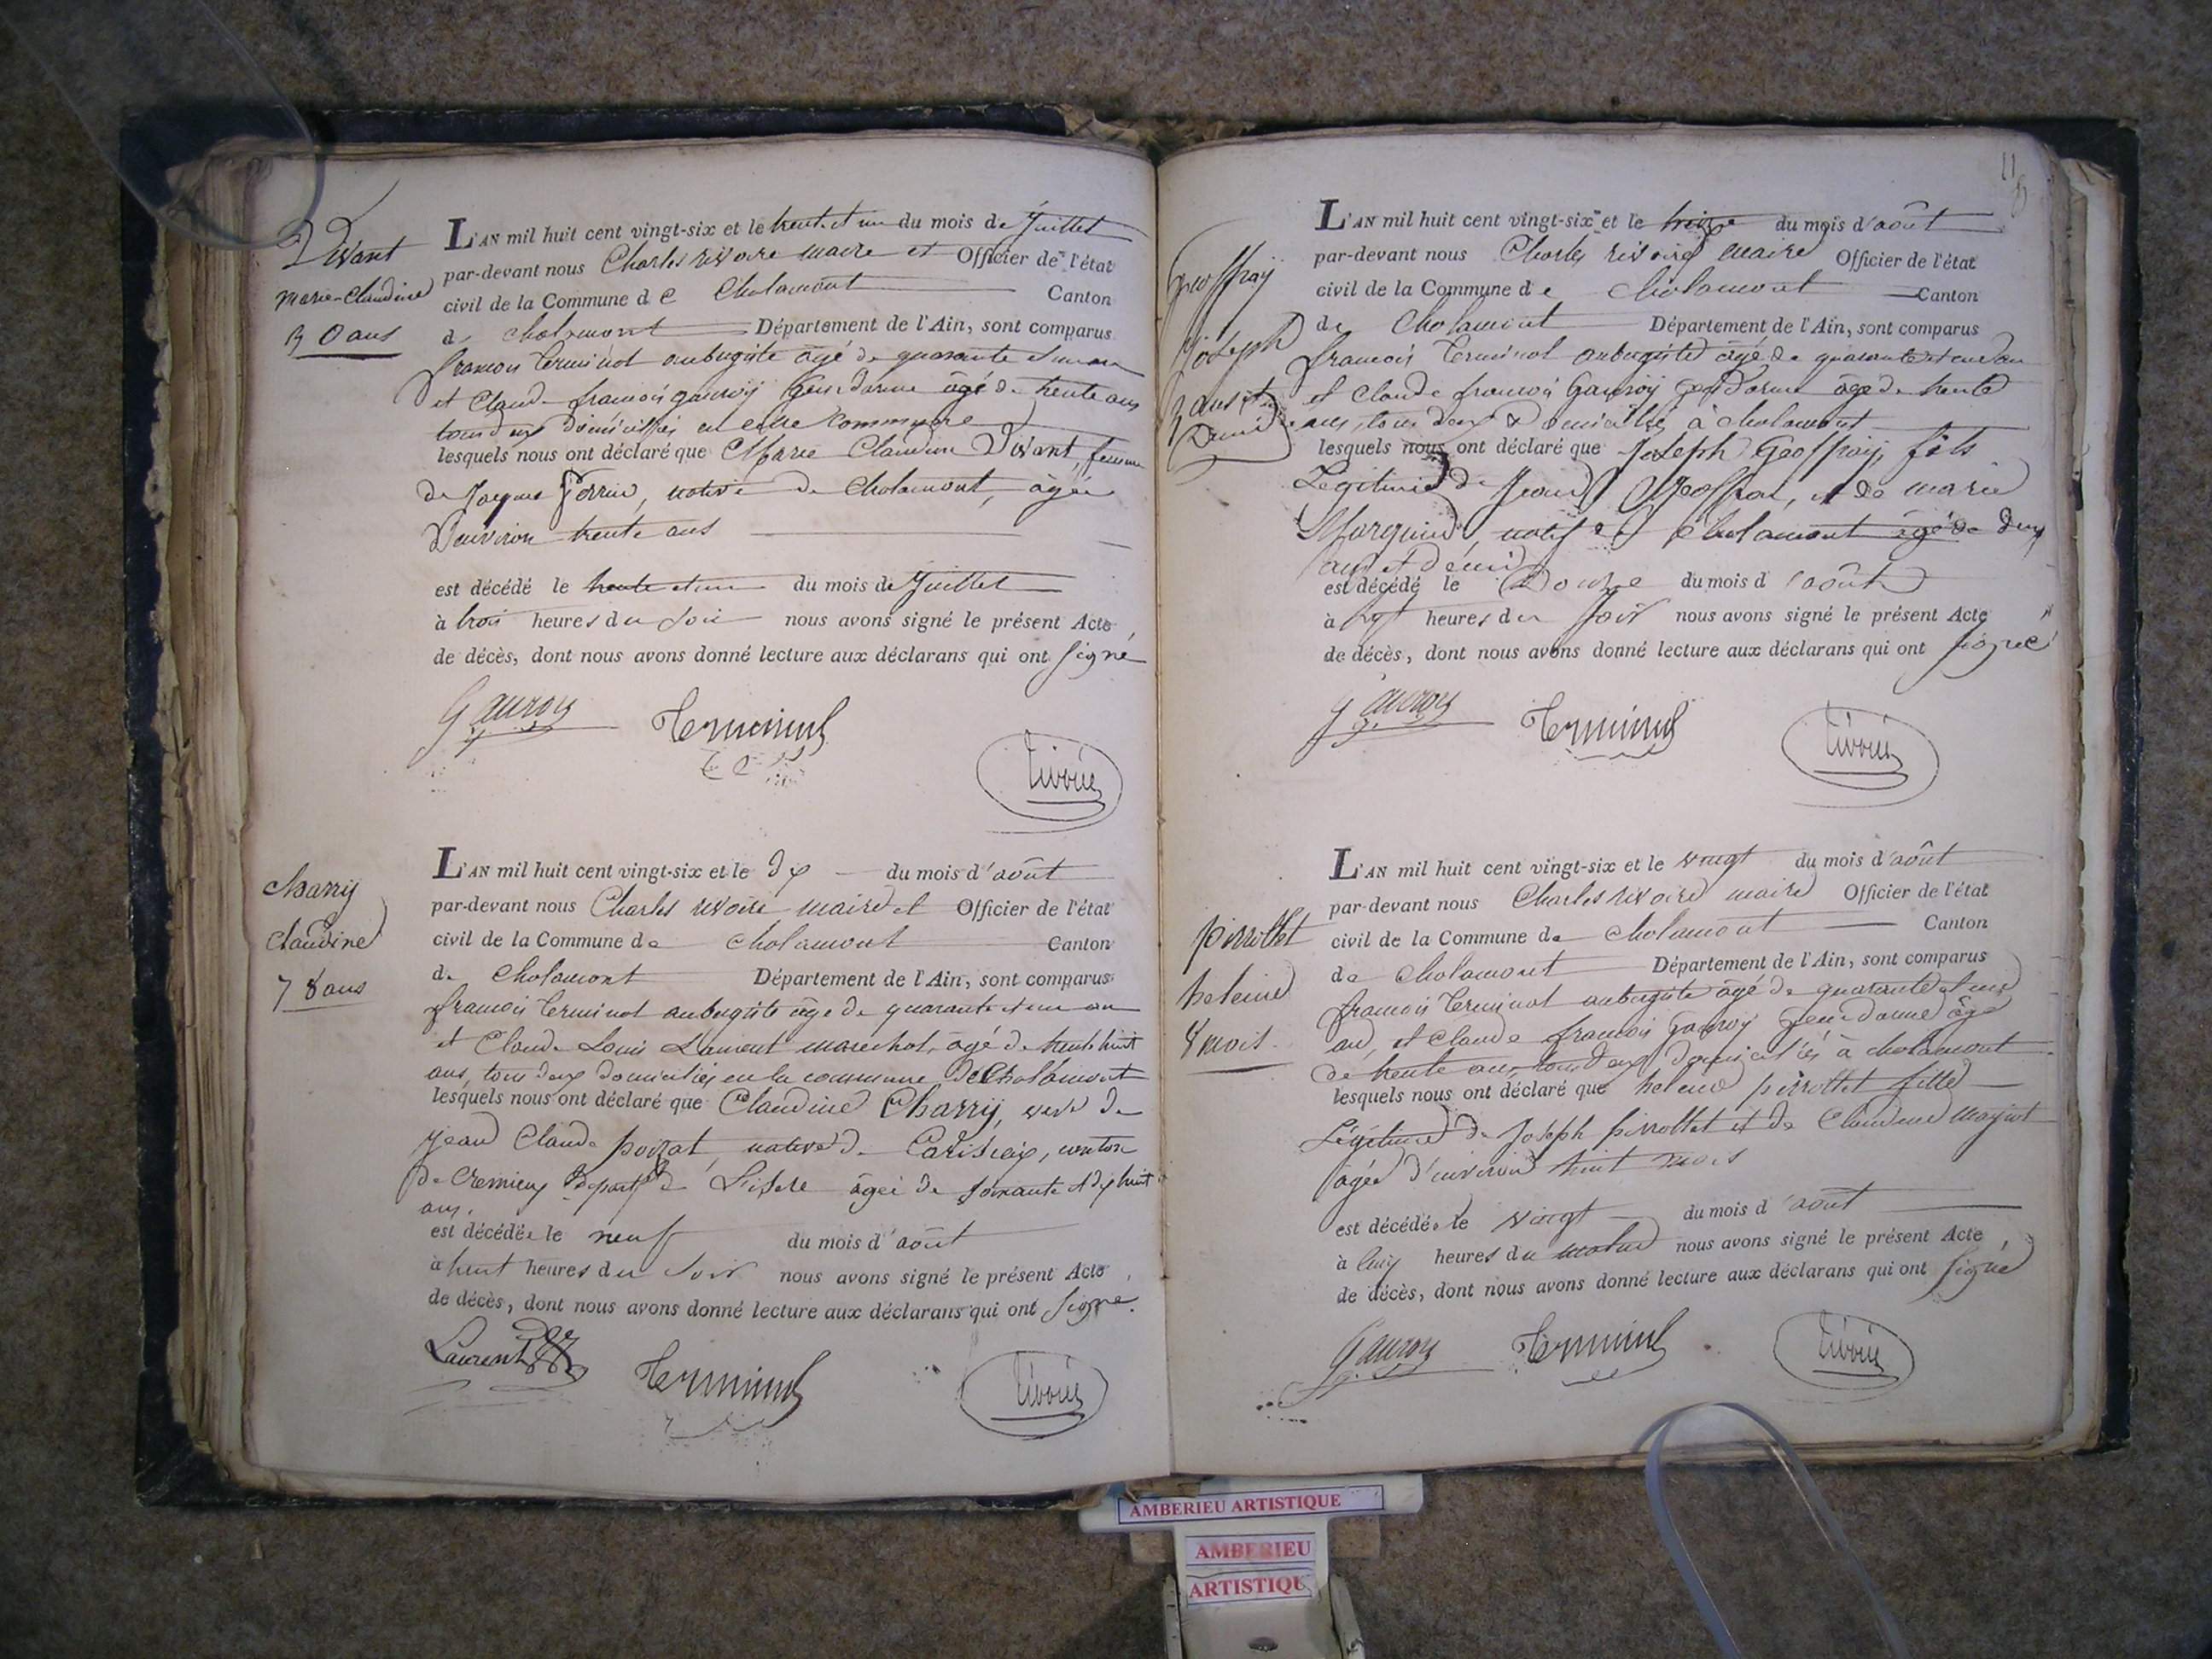 Divant
Marie-Claudine
30 ans
L'AN mil huit cent vingt-six et le trente et un du mois de Juillet
par-devant nous Charles rivoire maire et Officier de l'état
civil de la Commune de Chalamont Canton
de Chalamont Département de l'Ain, sont comparus
francois Terminot aubergiste âgé de quarante et un an
et Claude francois gauroy Gendarme âgé de trente ans
tous deux domiciliés en cette commune
lesquels nous ont déclaré que Marie Claudine Divant, femme
de Jacques Perrin, native de Chalamont, âgée
d'environ trente ans
est décédé le trente et un du mois de Juillet
à trois heures du soir nous avons signé le présent Acte
de décès, dont nous avons donné lecture aux déclarans qui ont signé
Gauroy Terminot rivoire
Charry
Claudine
78 ans
L'AN mil huit cent vingt-six et le dix du mois d'août
par-devant nous Charles rivoire maire et Officier de l'état
civil de la Commune de Chalamont Canton
de Chalamont Département de l'Ain, sont comparus
francois Terminot aubergiste âgé de quarante et un an
et Claude Louis Laurent marechal, âgé de trente huit
ans, tous deux domiciliés en la commune de Chalamont
lesquels nous ont déclaré que Claudine Charry, veuve de
Jean Claude poizat, native de canton
de Cremieu départ de L'isere âgée de soixante et dix huit
ans.
est décédée le neuf du mois d'août
à huit heures du soir nous avons signé le présent Acte
de décès, dont nous avons donné lecture aux déclarans qui ont signé.
Laurent Terminot rivoire
11
Geoffray
Joseph
2 ans et
demi
L'AN mil huit cent vingt-six et le treize du mois d'août
par-devant nous Charles rivoire maire Officier de l'état
civil de la Commune de Chalamont Canton
de Chalamont Département de l'Ain, sont comparus
francois Terminot aubergiste âgé de quarante et un an
et Claude francois Gauroy gendarme âgé de trente
ans, tous deux domiciliés à chalamont
lesquels nous ont déclaré que Joseph Geoffray, fils
Légitime de Jean Geoffrai, et de marie
Marguin, natif de Chalamont âgé de deux
ans et demi
est décédé le Douze du mois d'août
à heures du soir nous avons signé le présent Acte
de décès, dont nous avons donné lecture aux déclarans qui ont signé
Gauroy Terminot rivoire
pirrollet
heleine
8 mois.
L'AN mil huit cent vingt-six et le vingt du mois d'août
par-devant nous Charles rivoire maire Officier de l'état
civil de la Commune de Chalamont Canton
de Chalamont Département de l'Ain, sont comparus
francois Terminot aubergiste âgé de quarante et un
an, et Claude francois Gauroy Gendarme âgé
de trente ans, tous deux domiciliés à chalamont
lesquels nous ont déclaré que helene pirrollet fille
Légitime de Joseph pirrollet et de Claudine
âgée d'environ huit mois
est décédée le vingt du mois d'août
à cinq heures du matin nous avons signé le présent Acte
de décès, dont nous avons donné lecture aux déclarans qui ont signé
Gauroy Terminot rivoire
AMBERIEU ARTISTIQUE
AMBERIEU
ARTISTIQU